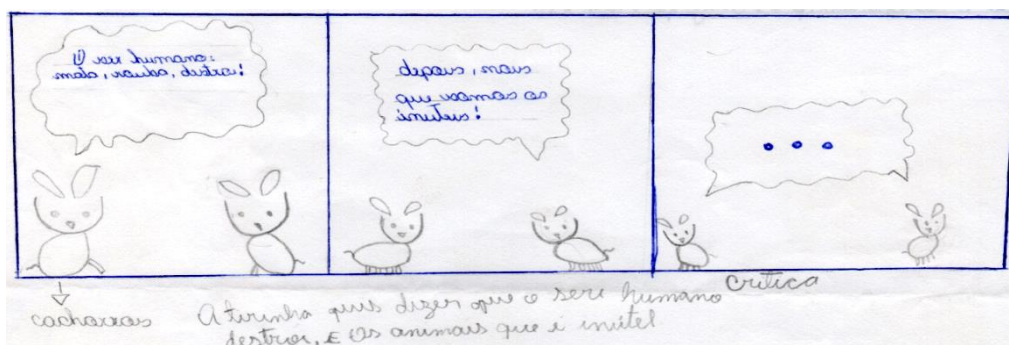 O ser humano:
mata, rouba, destroi!
depois, nous
que somos os
inuteis!
• • •
cachorros
critica
A tirinha quis dizer que o sere humano
destroi, E os animais que é inútel